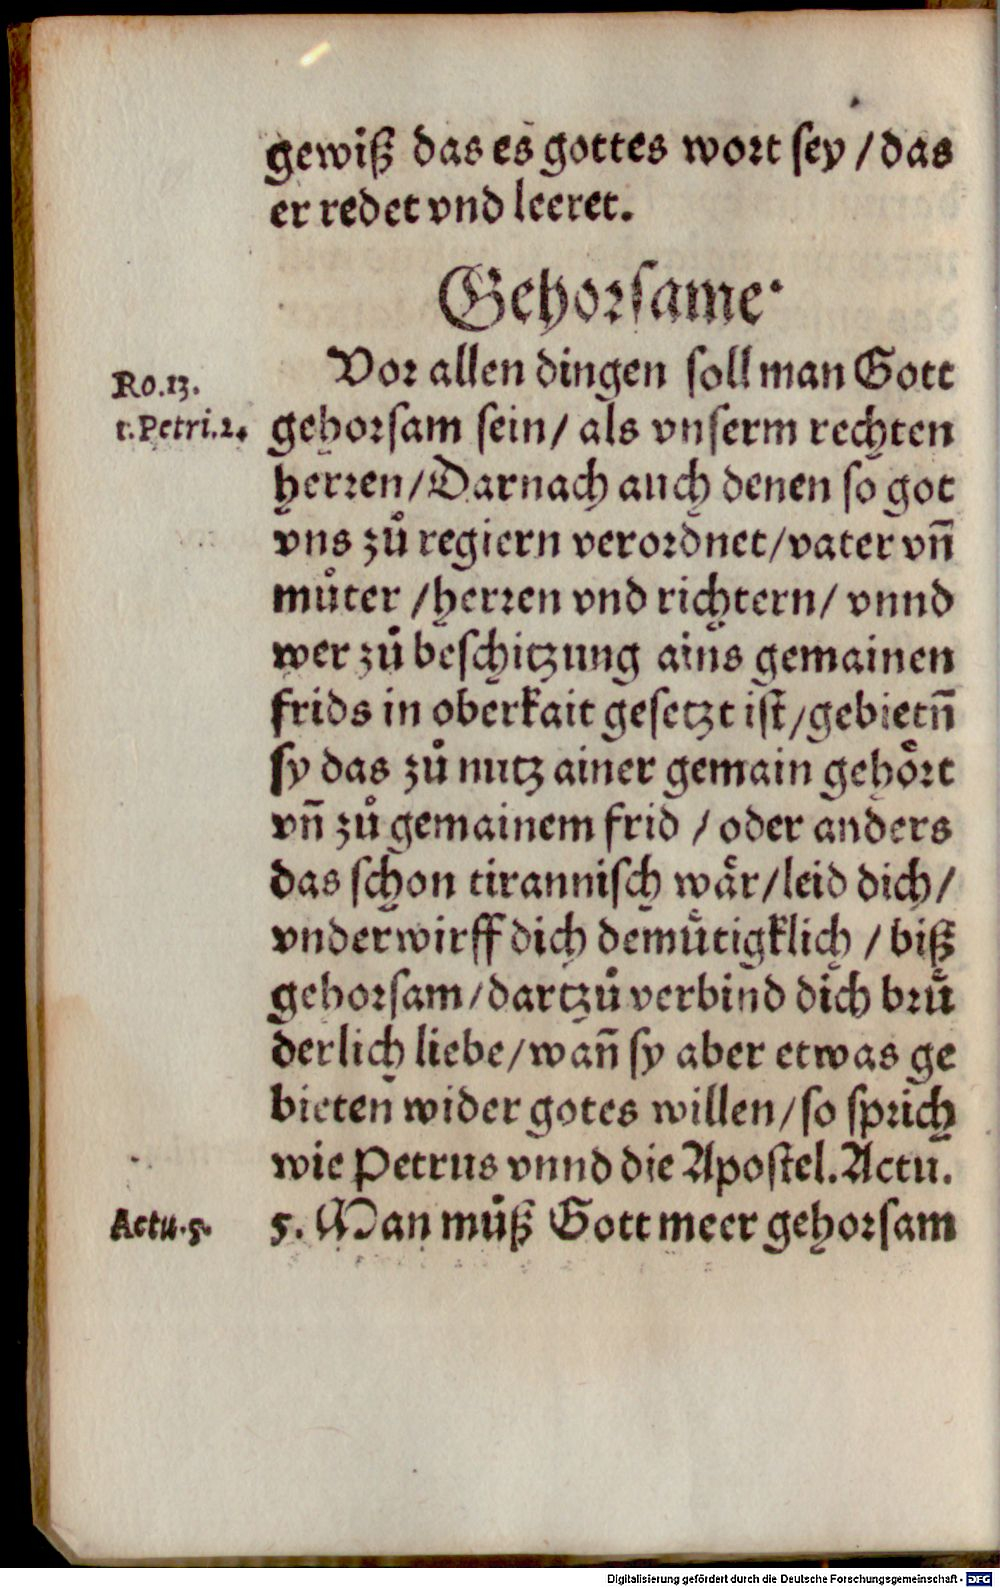 gewiß das es gottes wort sey / das
er redet vnd leeret.
Gehorsame·
Vor allen dingen soll man Gott
Ro.13.
1.Petri.2.
gehorsam sein / als vnserm rechten
herren / Darnach auch denen so got
vns zů regiern verordnet / vater vñ
můter / herren vnd richtern / vnnd
wer zů beschitzung ains gemainen
frids in oberkait gesetzt ist / gebietñ
sy das zů nutz ainer gemain gehoͤrt
vñ zů gemainem frid / oder anders
das schon tirannisch waͤr / leid dich /
vnderwirff dich demuͤtigklich / biß
gehorsam / dartzů verbind dich bruͤ
derlich liebe / wañ sy aber etwas ge
bieten wider gotes willen / so sprich
wie Petrus vnnd die Apostel. Actu.
Actu.5.
5. Man můß Gott meer gehorsam
Digitalisierung gefördert durch die Deutsche Forschungsgemeinschaft - DFG